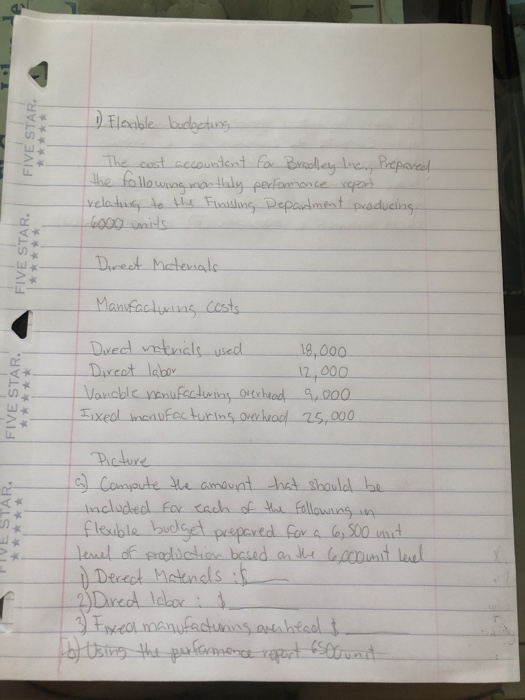 1) Flexible budgeting
The cost accountant for Bradley Inc., Prepared
the following monthly performance report
relating to the Finishing Department producing
6000 units
Direct Materials
Manufacturing costs
Direct materials used 18,000
Direct labor 12,000
Variable manufacturing overhead 9,000
Fixed manufacturing overhead 25,000
Picture
a) Compute the amount that should be
included for each of the following in
flexible budget prepared for a 6,500 unit
level of production based on the 6,000unit level
1) Derect Materials : $
2) Direct labor : $
3) Fixed manufacturing overhead $
b) Using the performance report 6500 unit
FIVE STAR.
FIVE STAR.
FIVE STAR.
FIVE STAR.